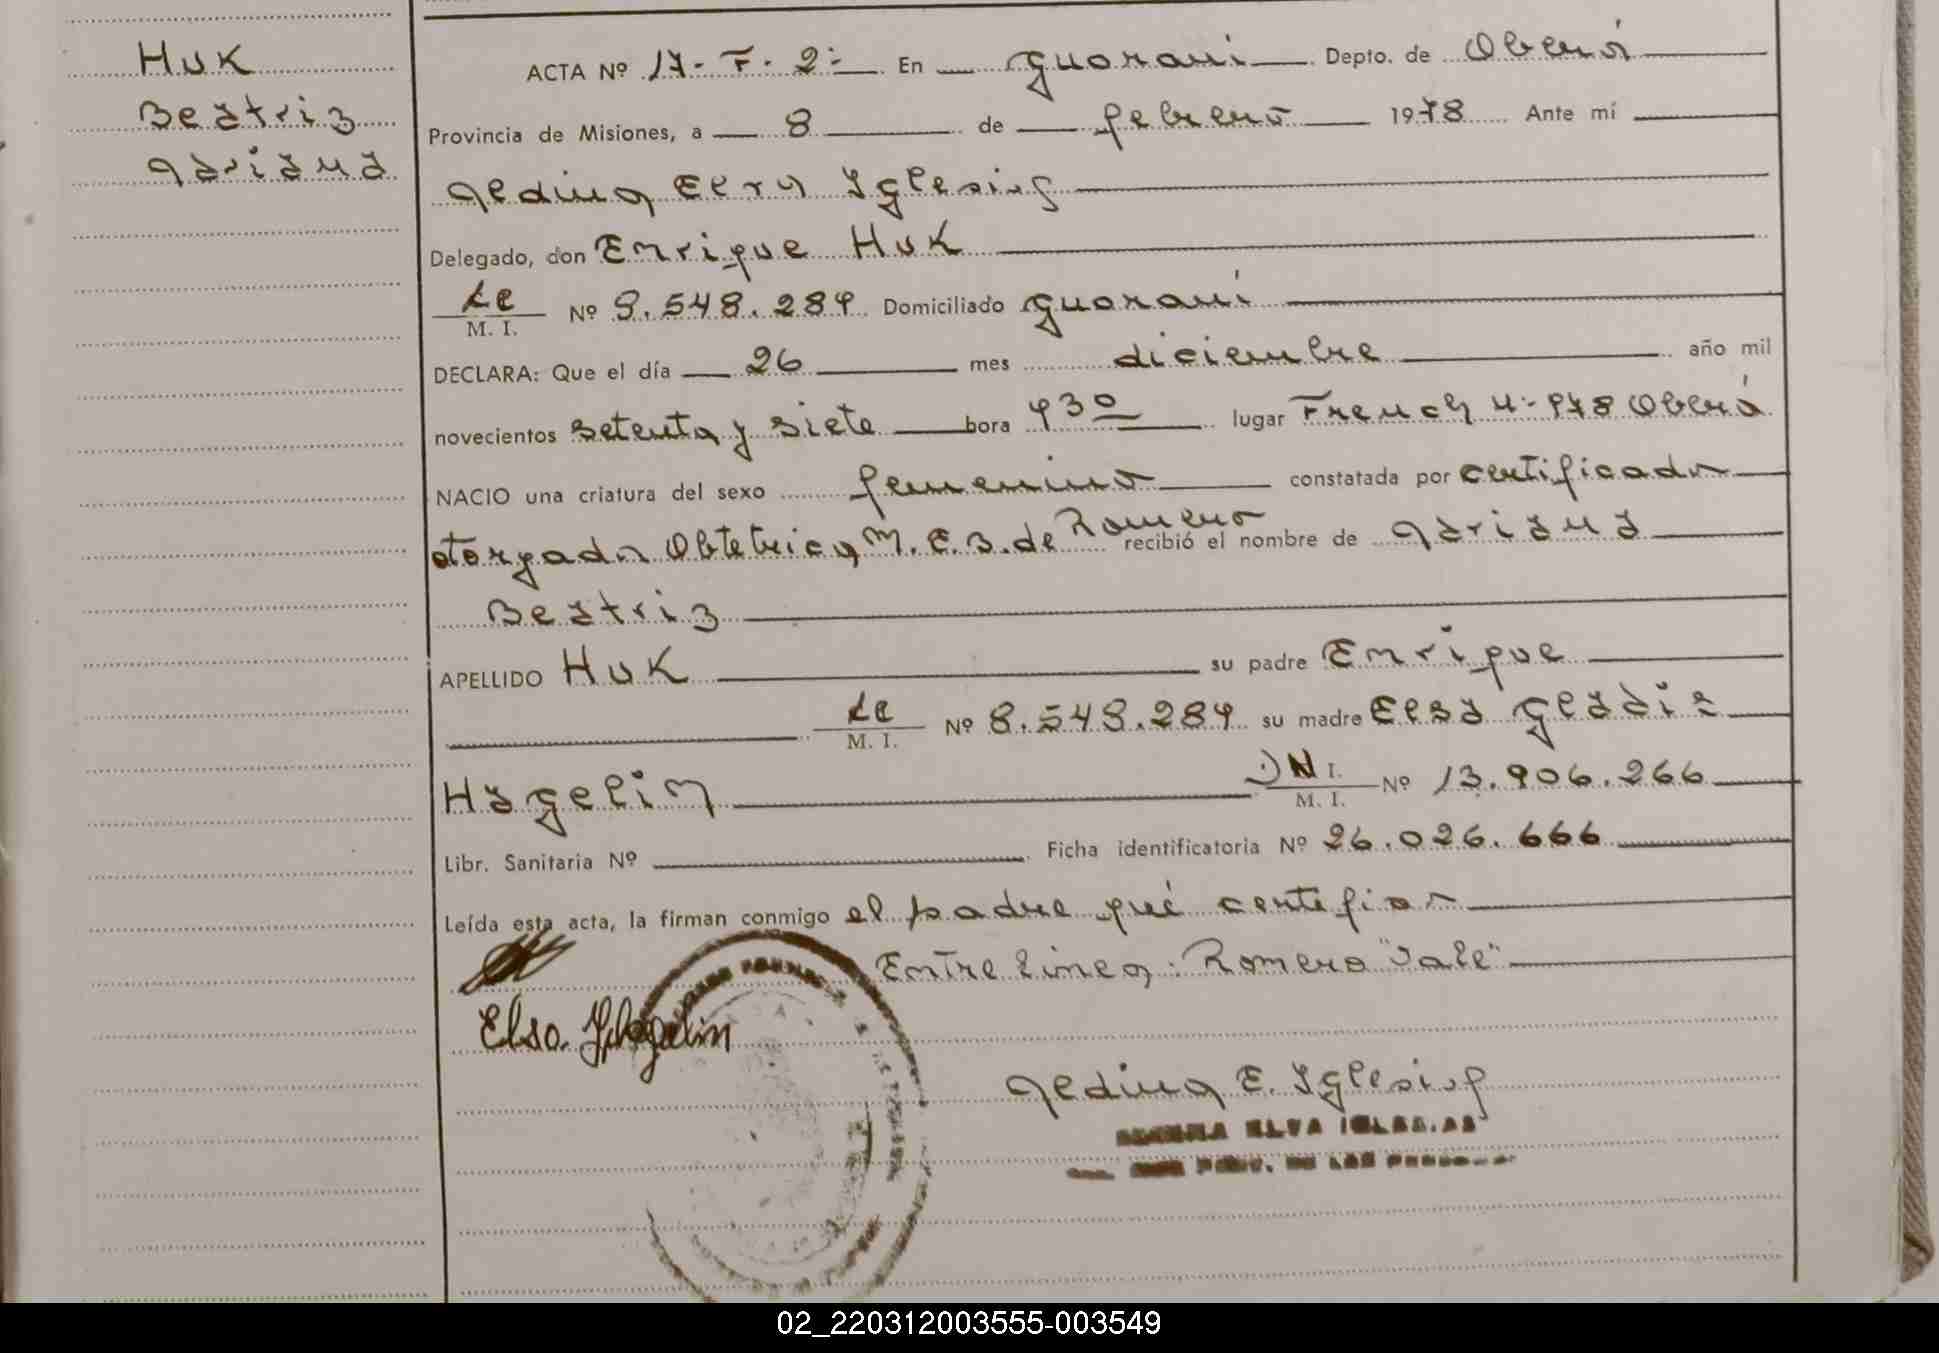 Huk
Beatriz
Adriana
ACTA Nº 17-F-2: En Guarani Depto. de Oberá
Provincia de Misiones, a 8 de febrero 1978 Ante mí
Aedina Elva Iglesias
Delegado, don Enrique Huk
LE M. I. Nº 8.548.289 Domiciliado Guarani
DECLARA: Que el día 26 mes diciembre año mil
novecientos setenta y siete hora 930 lugar French Nº 978 Oberá
NACIO una criatura del sexo femenino constatada por certificado
otorgado Obtetrica M. E. B. de Romero recibió el nombre de Adriana
Beatriz
APELLIDO Huk su padre Enrique
LE M. I. Nº 8.548.289 su madre Elsa Gladis
Hagelin DNI. M. I. Nº 13.906.266
Libr. Sanitaria Nº Ficha identificatoria Nº 26.026.666
Leída esta acta, la firman conmigo el padre qué certifico
Entre linea: Romero "Vale"
Elsa Hagelin
Aedina E. Iglesias
ELVA IGLESIAS
DE LAS PERSONAS
02_220312003555-003549